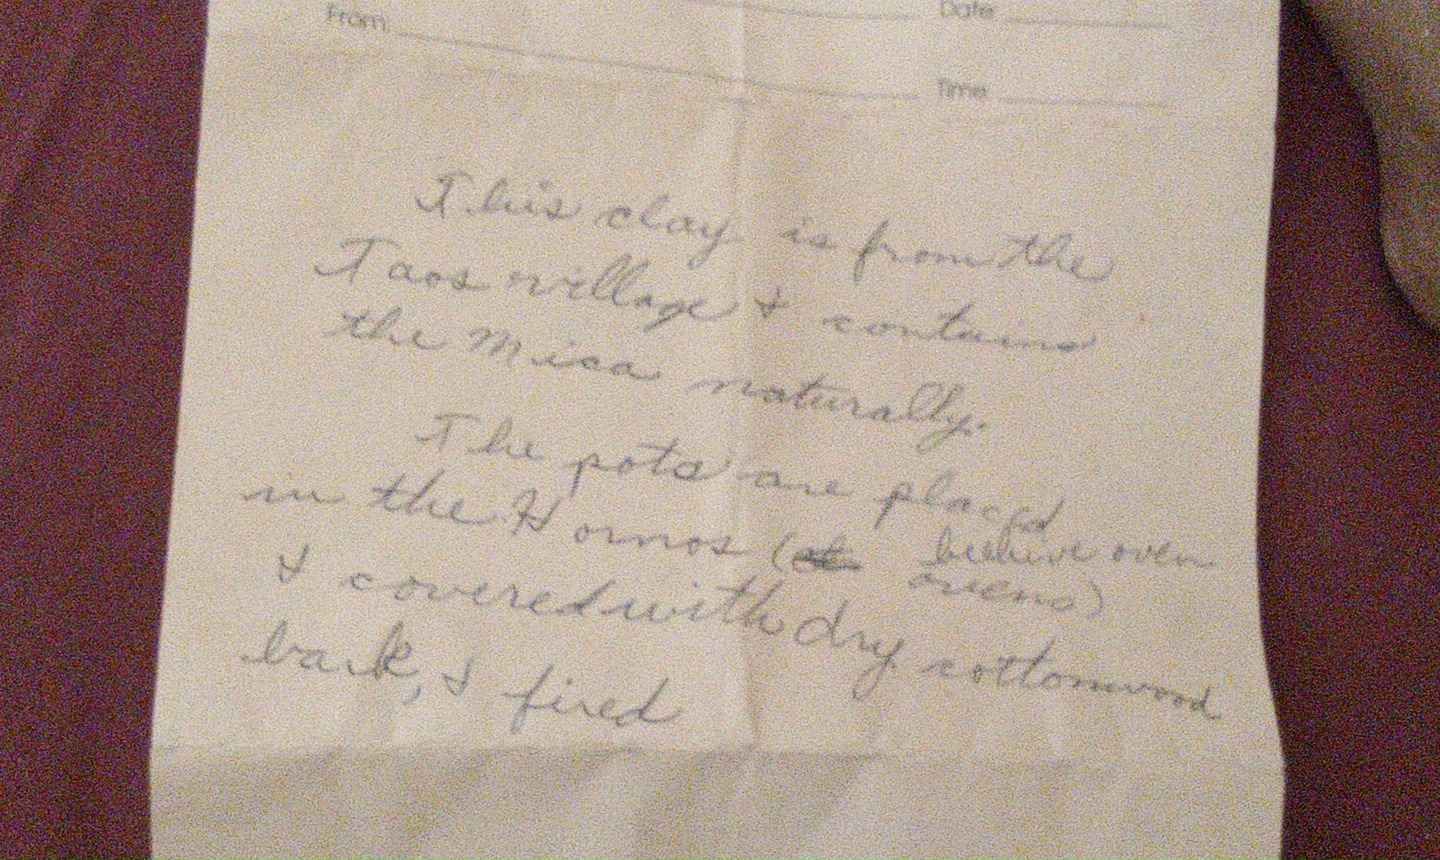 Date
From
Time
This clay is from the
Taos village & contains
the Mica naturally.
The pots are placed
in the Hornos ( beehive oven
ovens)
& covered with dry cottonwood
bark, & fired